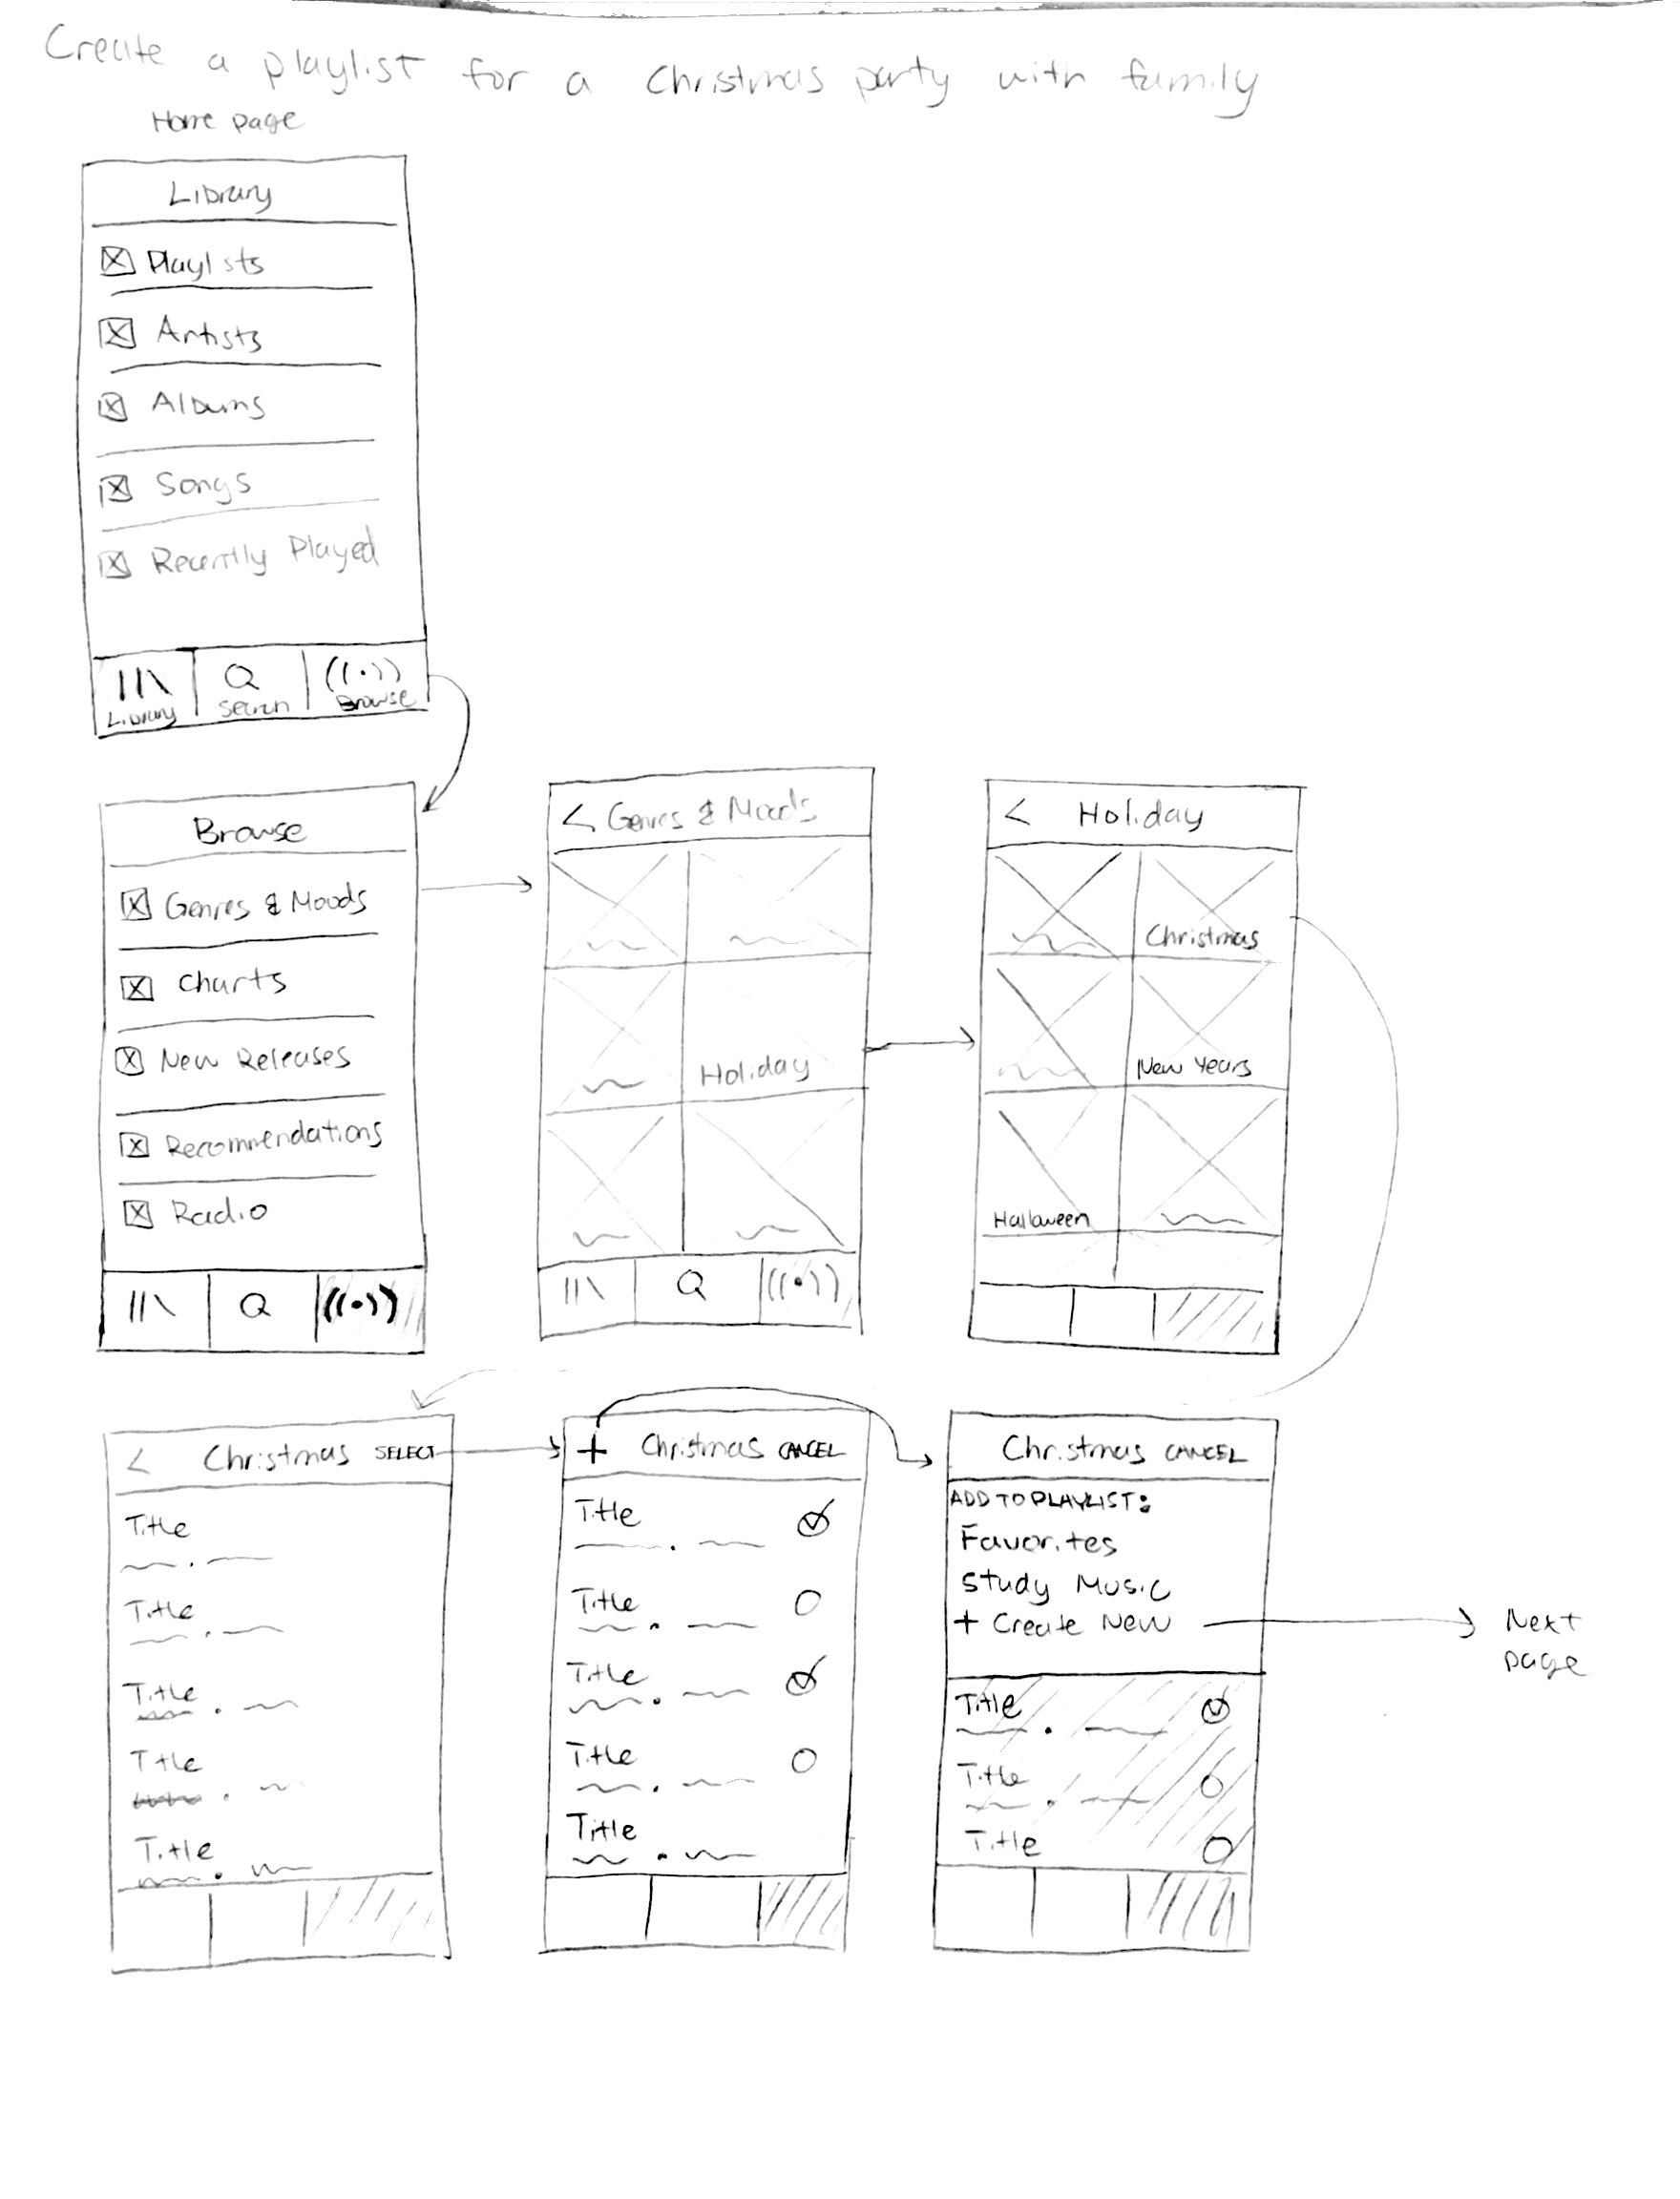 Create a playlist for a Christmas party with family
Home page
Library
Playlists
Artists
Albums
Songs
Recently Played
Library
Search
Browse
Browse
Genres & Moods
Charts
New Releases
Recommendations
Radio
< Genres & Moods
Holiday
< Holiday
Christmas
New Years
Halloween
< Christmas SELECT
Title
Title
Title
Title
Title
+ Christmas CANCEL
Title
Title
Title
Title
Title
Christmas CANCEL
ADD TO PLAYLIST:
Favorites
Study Music
+ Create New
Next
page
Title
Title
Title